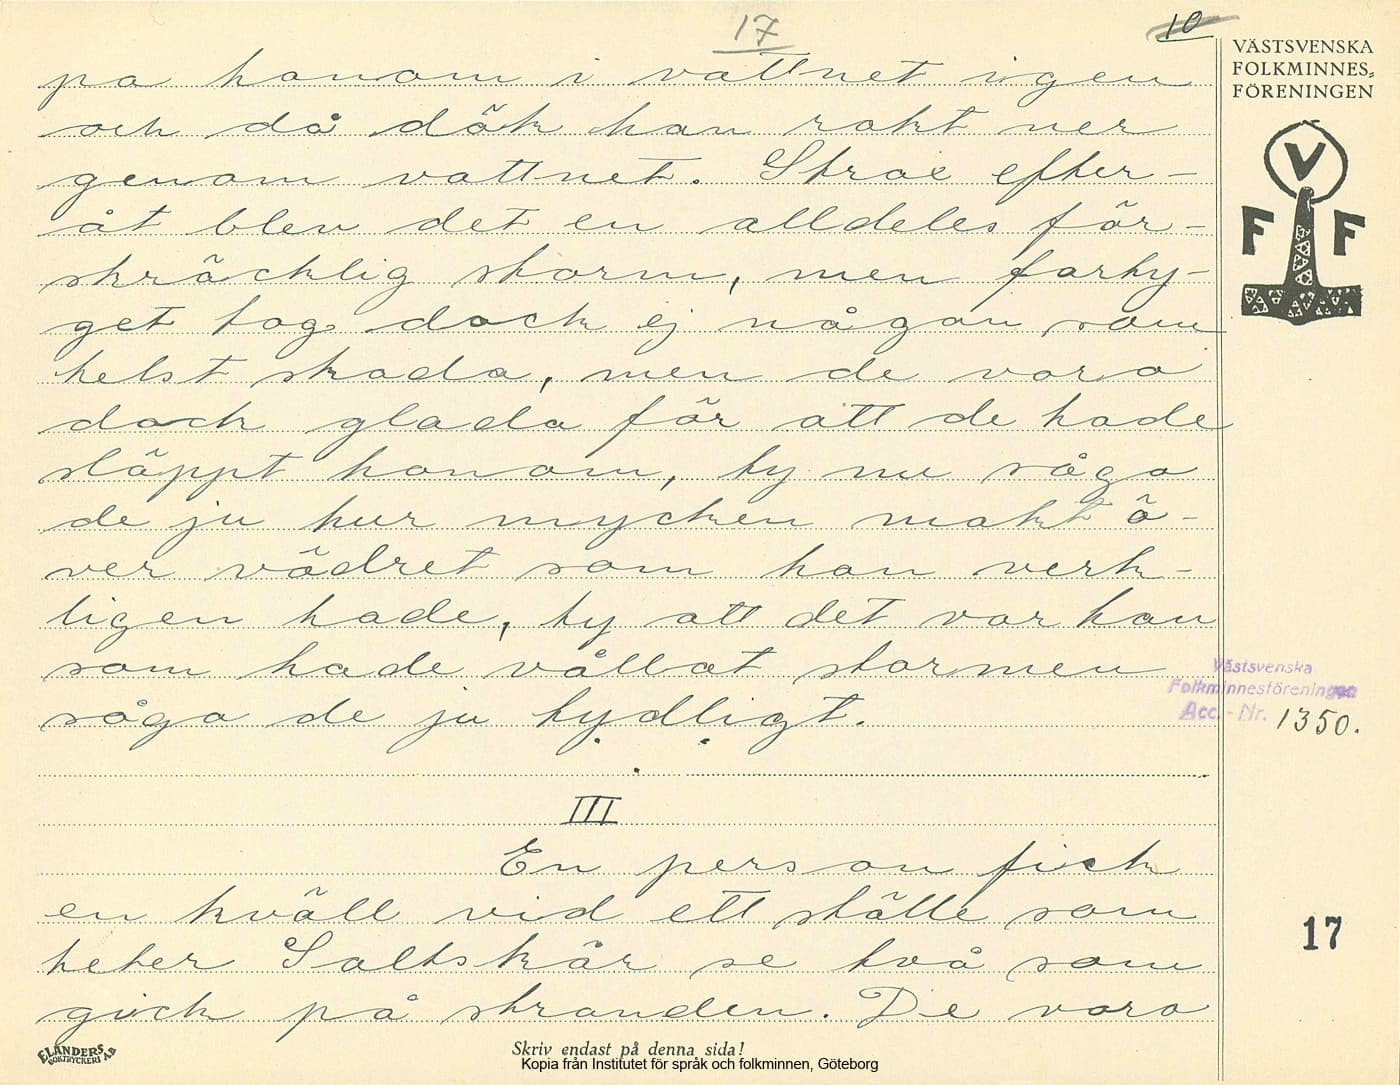 17
10
VÄSTSVENSKA
FOLKMINNES=
FÖRENINGEN
V
F F
pa honom i vattnet igen
och då dök han rakt ner
genom vattnet. Strax efter-
åt blev det en alldeles för-
skräcklig storm, men farty-
get tog dock ej någon som
helst skada, men de voro
dock glada för att de hade
släppt honom, ty nu sågo
de ju hur mycken makt ö-
ver vädret som han verk-
ligen hade, ty att det var han
som hade vållat stormen
sågo de ju tydligt.
Västsvenska
Folkminnesföreningen
Acc. - Nr. 1350.
III
En person fick
en kväll vid ett ställe som
heter Saltskär se två som
gick på stranden. De voro
17
ELANDERS
BOKTRYCKERI AB
Skriv endast på denna sida!
Kopia från Institutet för språk och folkminnen, Göteborg